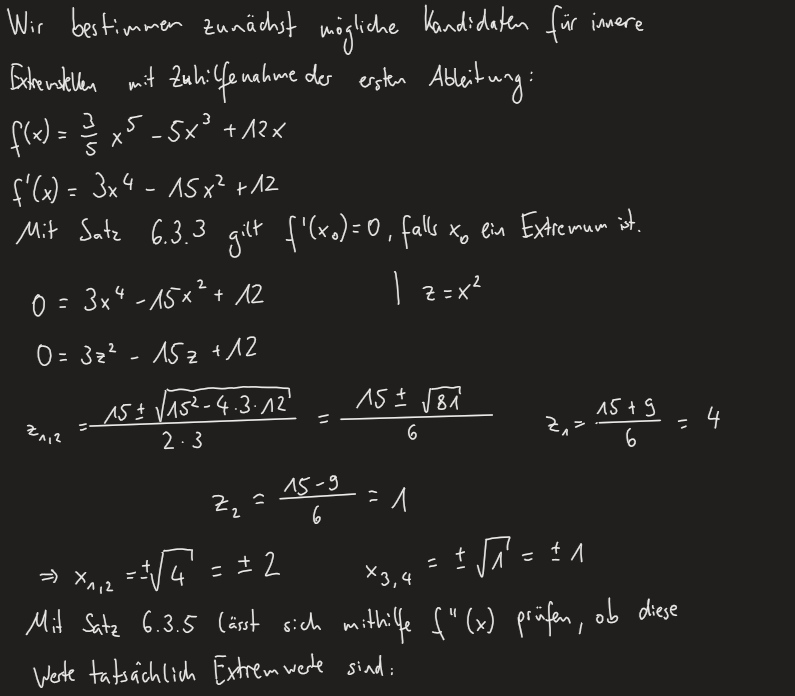 Wir bestimmen zunächst mögliche Kandidaten für innere
Extremstellen mit Zuhilfenahme der ersten Ableitung:
f(x) = 3/5 x⁵ - 5x³ + 12x
f'(x) = 3x⁴ - 15x² + 12
Mit Satz 6.3.3 gilt f'(x₀)=0, falls x₀ ein Extremum ist.
0 = 3x⁴ - 15x² + 12 | z = x²
0 = 3z² - 15z + 12
z₁,₂ = (15 ± √(15² - 4·3·12))/(2·3) = (15 ± √81)/6 z₁ = (15+9)/6 = 4
z₂ = (15-9)/6 = 1
⇒ x₁,₂ = ±√4 = ±2 x₃,₄ = ±√1 = ±1
Mit Satz 6.3.5 lässt sich mithilfe f''(x) prüfen, ob diese
Werte tatsächlich Extremwerte sind: